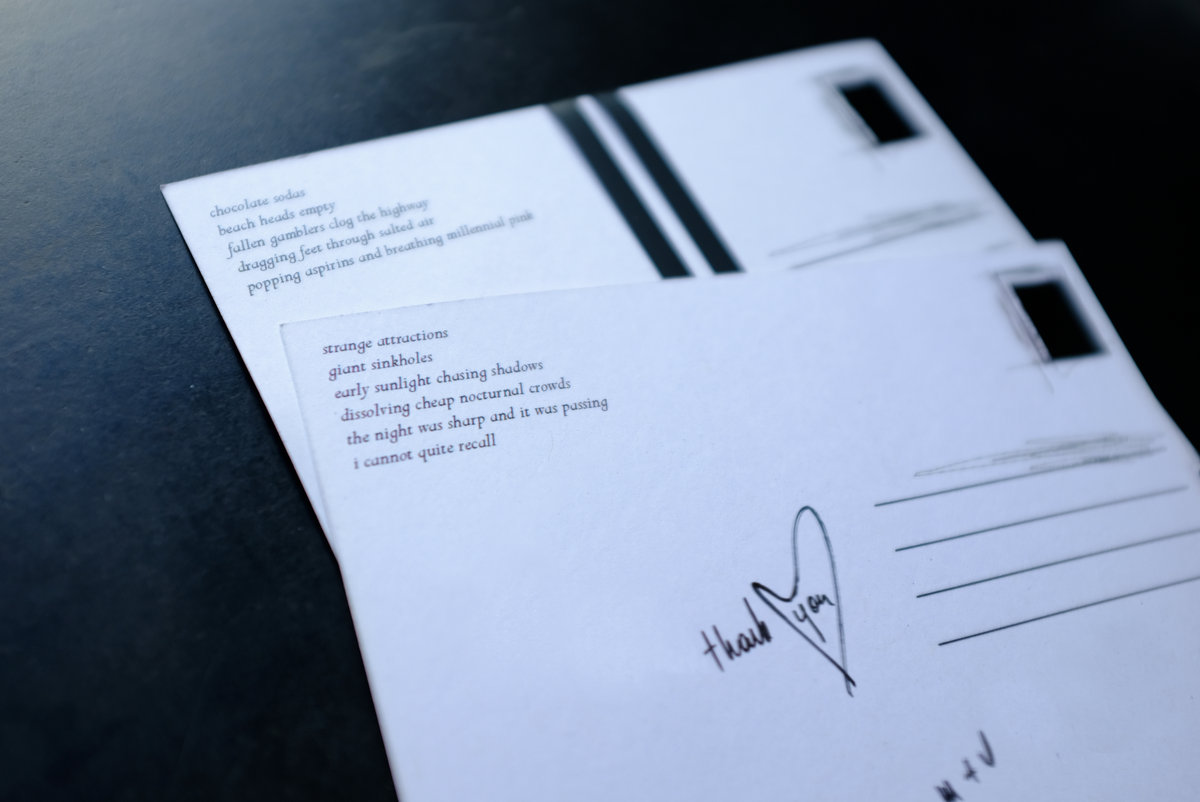 chocolate sodas
beach heads empty
fallen gamblers clog the highway
dragging feet through salted air
popping aspirins and breathing millennial pink
strange attractions
giant sinkholes
early sunlight chasing shadows
dissolving cheap nocturnal crowds
the night was sharp and it was passing
i cannot quite recall
thank you
M + V